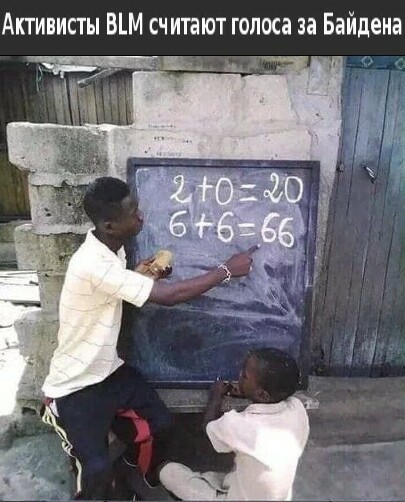 Активисты BLM считают голоса за Байдена
2+0=20
6+6=66